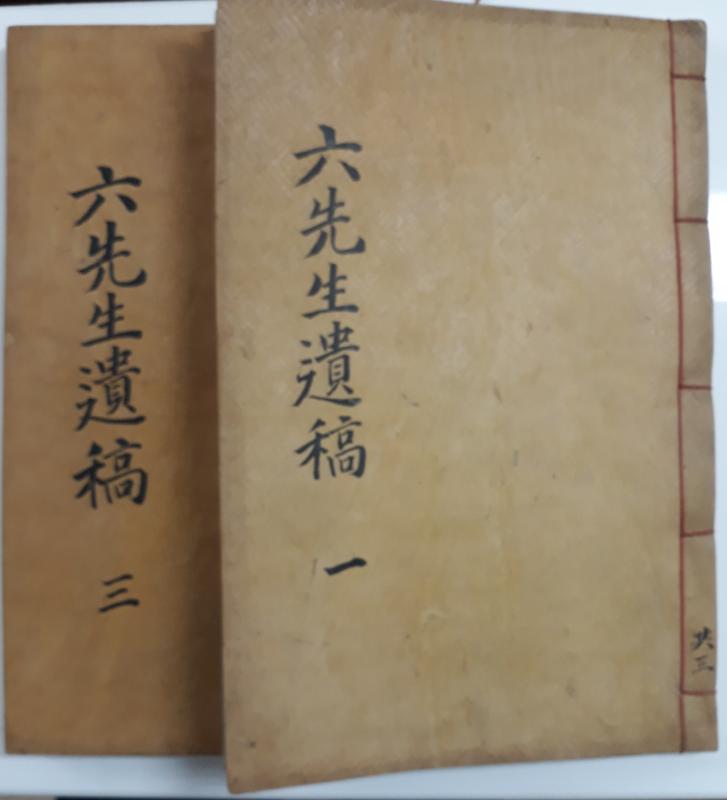 六先生遺稿 一
共三
六先生遺稿 三